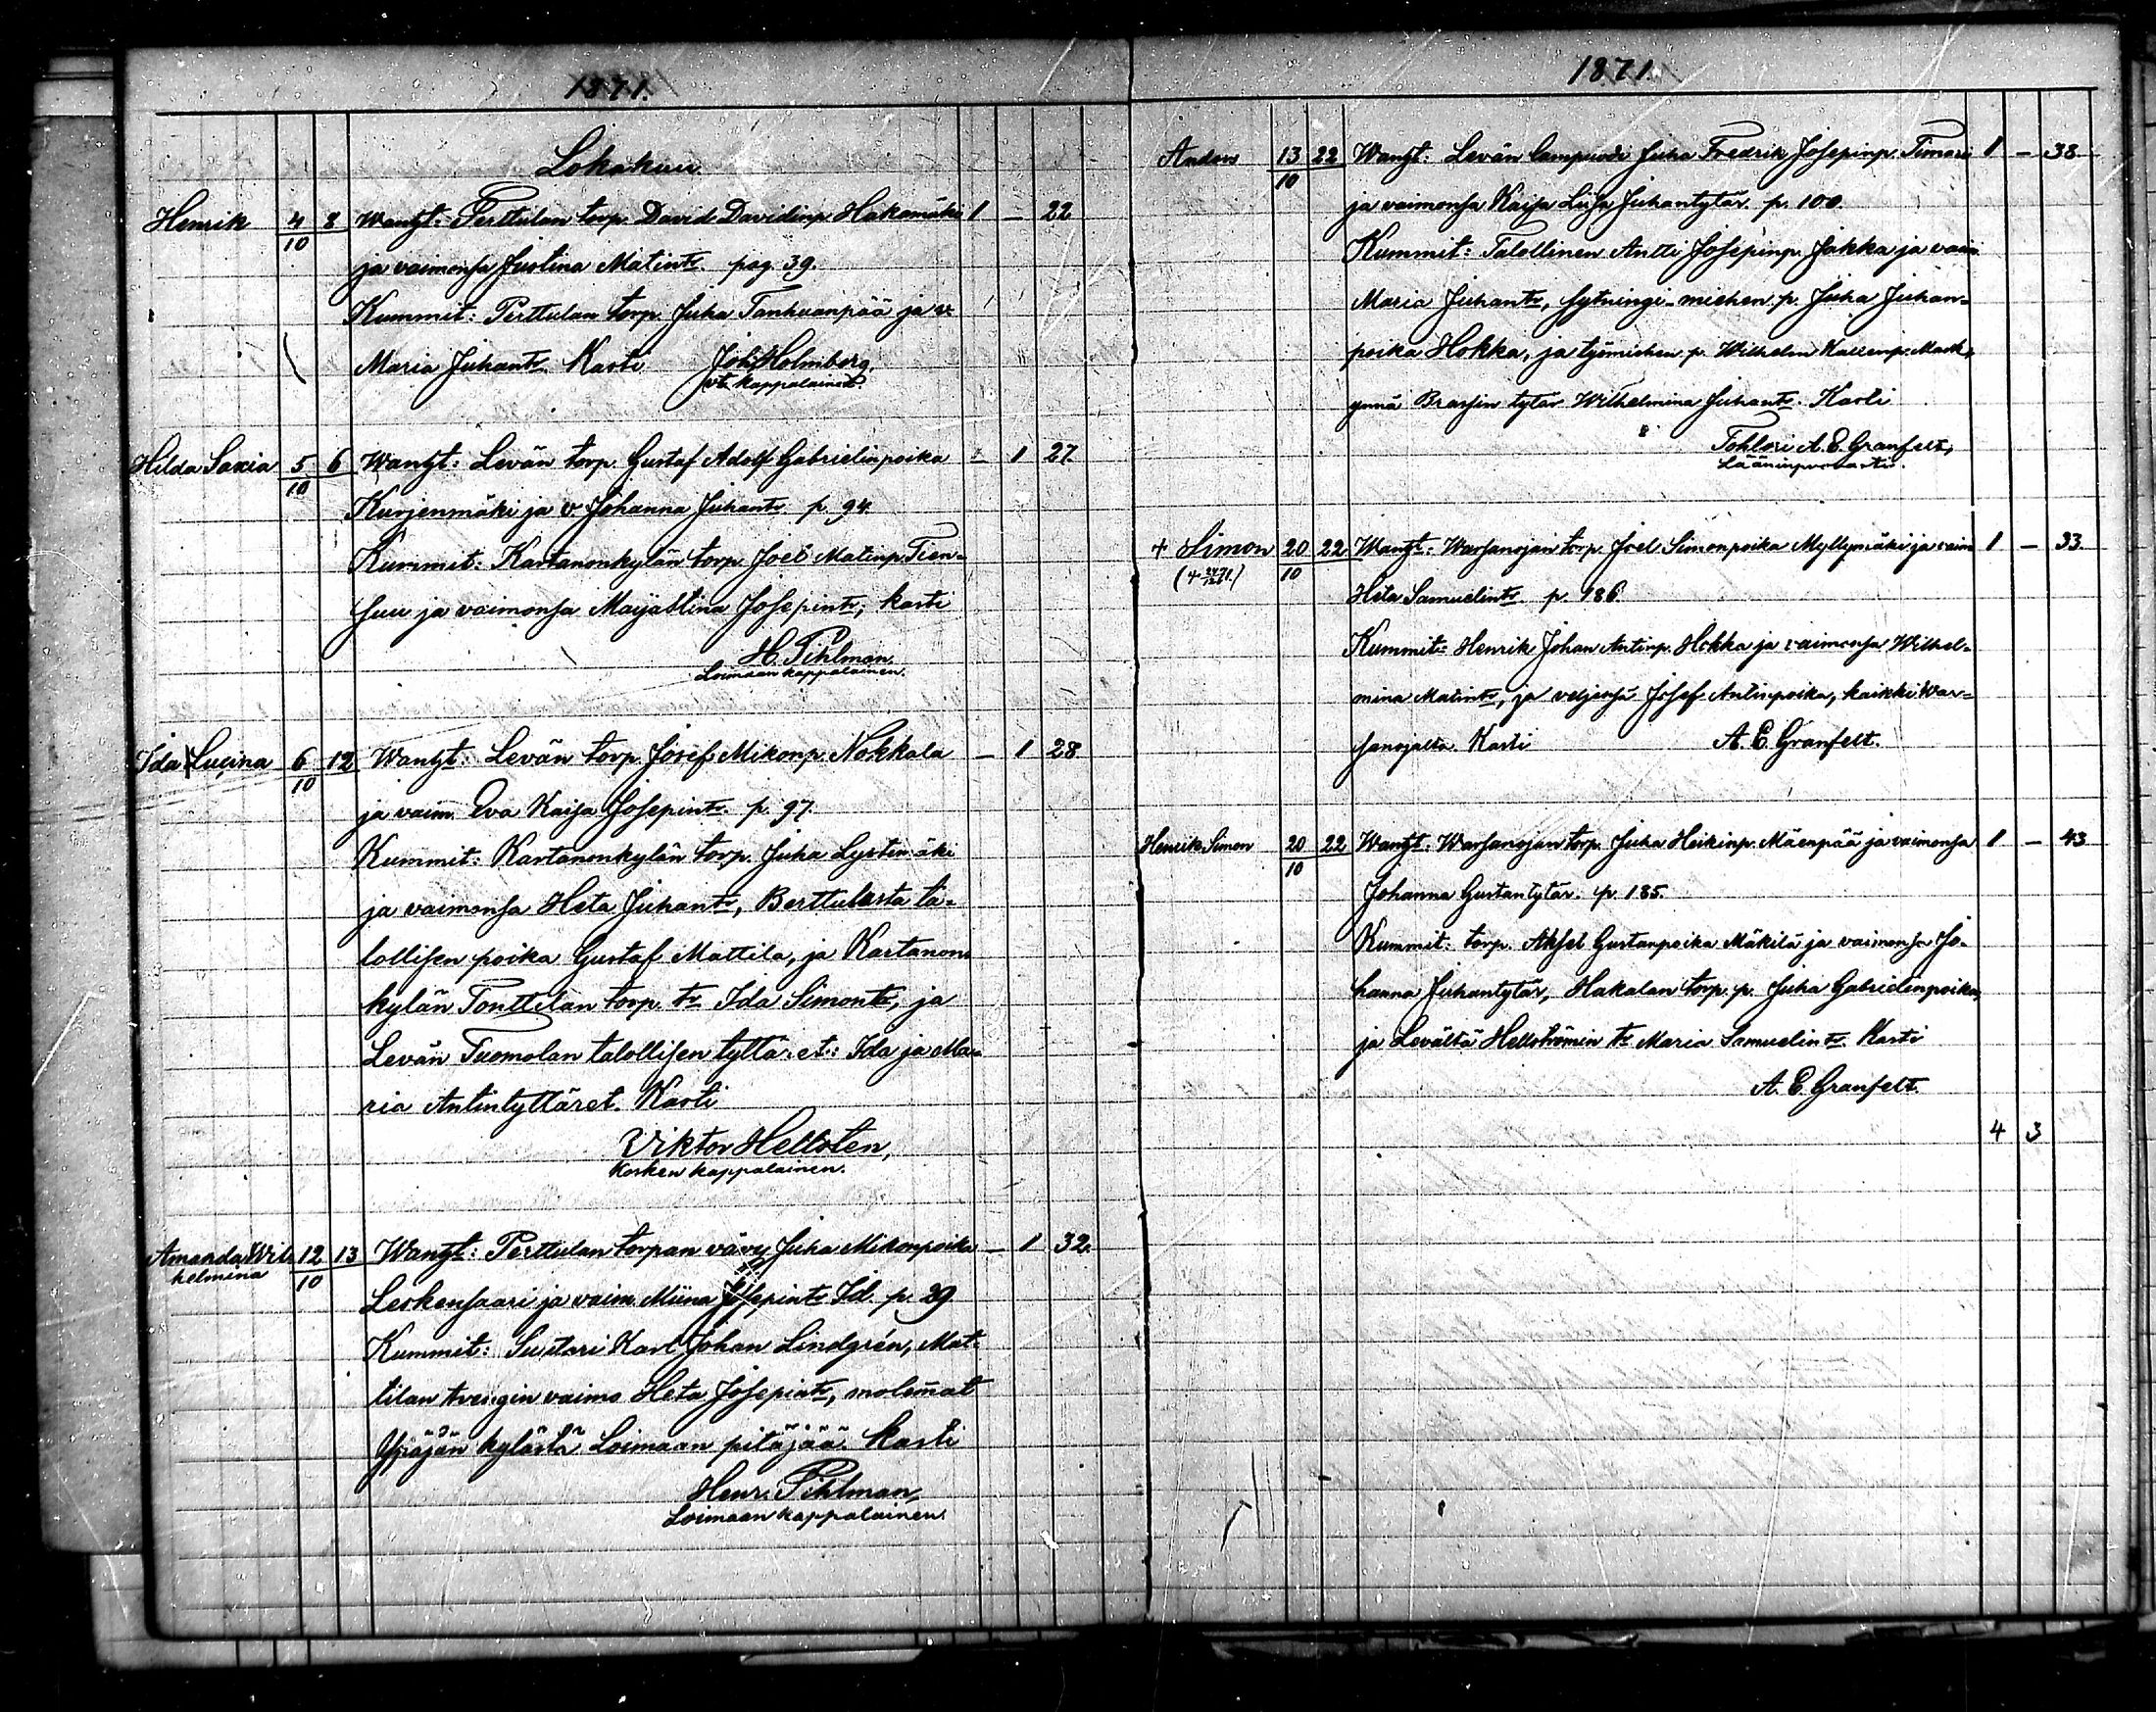 1871.
Lokakuu.
Henrik 4/10 8 Wanht: Perttulan torp. David Davidinp. Hakamäki 1 – 22
ja vaimonsa Justina Matintr. pag. 39.
Kummit: Perttulan torp. Juha Tanhuanpää ja v.
Maria Juhantr. Kasti Joh. Holmberg,
vt. kappalainen.
Hilda Saxia 5/10 6 Wanht: Levän torp. Gustaf Adolf Gabrielinpoika – 1 27.
Kurjenmäki ja v. Johanna Juhantr. p. 94.
Kummit: Kartanonkylän torp. Joel Matinp. Tien-
suu ja vaimonsa Maijastina Josepintr; kasti
H. Pihlman.
Loimaan kappalainen.
Ida Lucina 6/10 12 Wanht: Levän torp. Josef Mikonp. Nokkala – 1 28
ja vaim. Eva Kaisa Josepintr. p. 97.
Kummit: Kartanonkylän torp. Juha Lystimäki
ja vaimonsa Heta Juhantr, Berttulasta ta-
lollisen poika Gustaf Mattila, ja Kartanon-
kylän Tonttilan torp. tr Ida Simontr, ja
Levän Tuomolan talollisen tyttäret: Ida ja Ma-
ria Antintyttäret. Kasti
Viktor Hellsten,
Kosken kappalainen.
Amanda Wil- 12/10 13 Wanht: Perttulan torpan vävy Juha Mikonpoika – 1 32.
helmina
Leskensaari ja vaim. Miina Josepintr Id. p. 29
Kummit: Suutari Karl Johan Lindgrén, Mat-
tilan trengin vaimo Heta Josepintr, molemat
Ypäjän kylästä Loimaan pitäjää. Kasti
Henr. Pihlman,
Loimaan kappalainen.
1871.
Anders 13/10 22 Wanht: Levän lampuodi Juha Fredrik Josepinp. Timari 1 – 38
ja vaimonsa Kaisa Liisa Juhantytär. p. 100.
Kummit: Talollinen Antti Josepinp. Jakka ja vaim
Maria Juhantr, sytningi-miehen p. Juha Juhan-
poika Hokka, ja työmiehen p. Wilhelm Kallenp.
tytär Wilhelmina Juhantr. Kasti
Tohtori A. E. Granfelt,
Lääninprovasti.
+ Simon 20/10 22 Wanht: Warsanojan torp. Joel Simonpoika Myllymäki ja vaim 1 – 33.
Heta Samuelintr. p. 186.
Kummit: Henrik Johan Antinp. Hokka ja vaimonsa Wilhel-
mina Matintr, ja veljensä Josef Antinpoika, kaikki War-
sanojalta. Kasti A. E. Granfelt.
Henrik Simon 20/10 22 Wanht: Warsanojan torp. Juha Heikinp. Mäenpää ja vaimonsa 1 – 43
Johanna Gustantytär. p. 185.
Kummit: torp. Aksel Gustanpoika Mäkilä ja vaimonsa Jo-
hanna Juhantytär, Hakalan torp. p. Juha Gabrielinpoika,
ja Levältä Hellströmin tr Maria Samuelintr. Kasti
A. E. Granfelt.
4 3